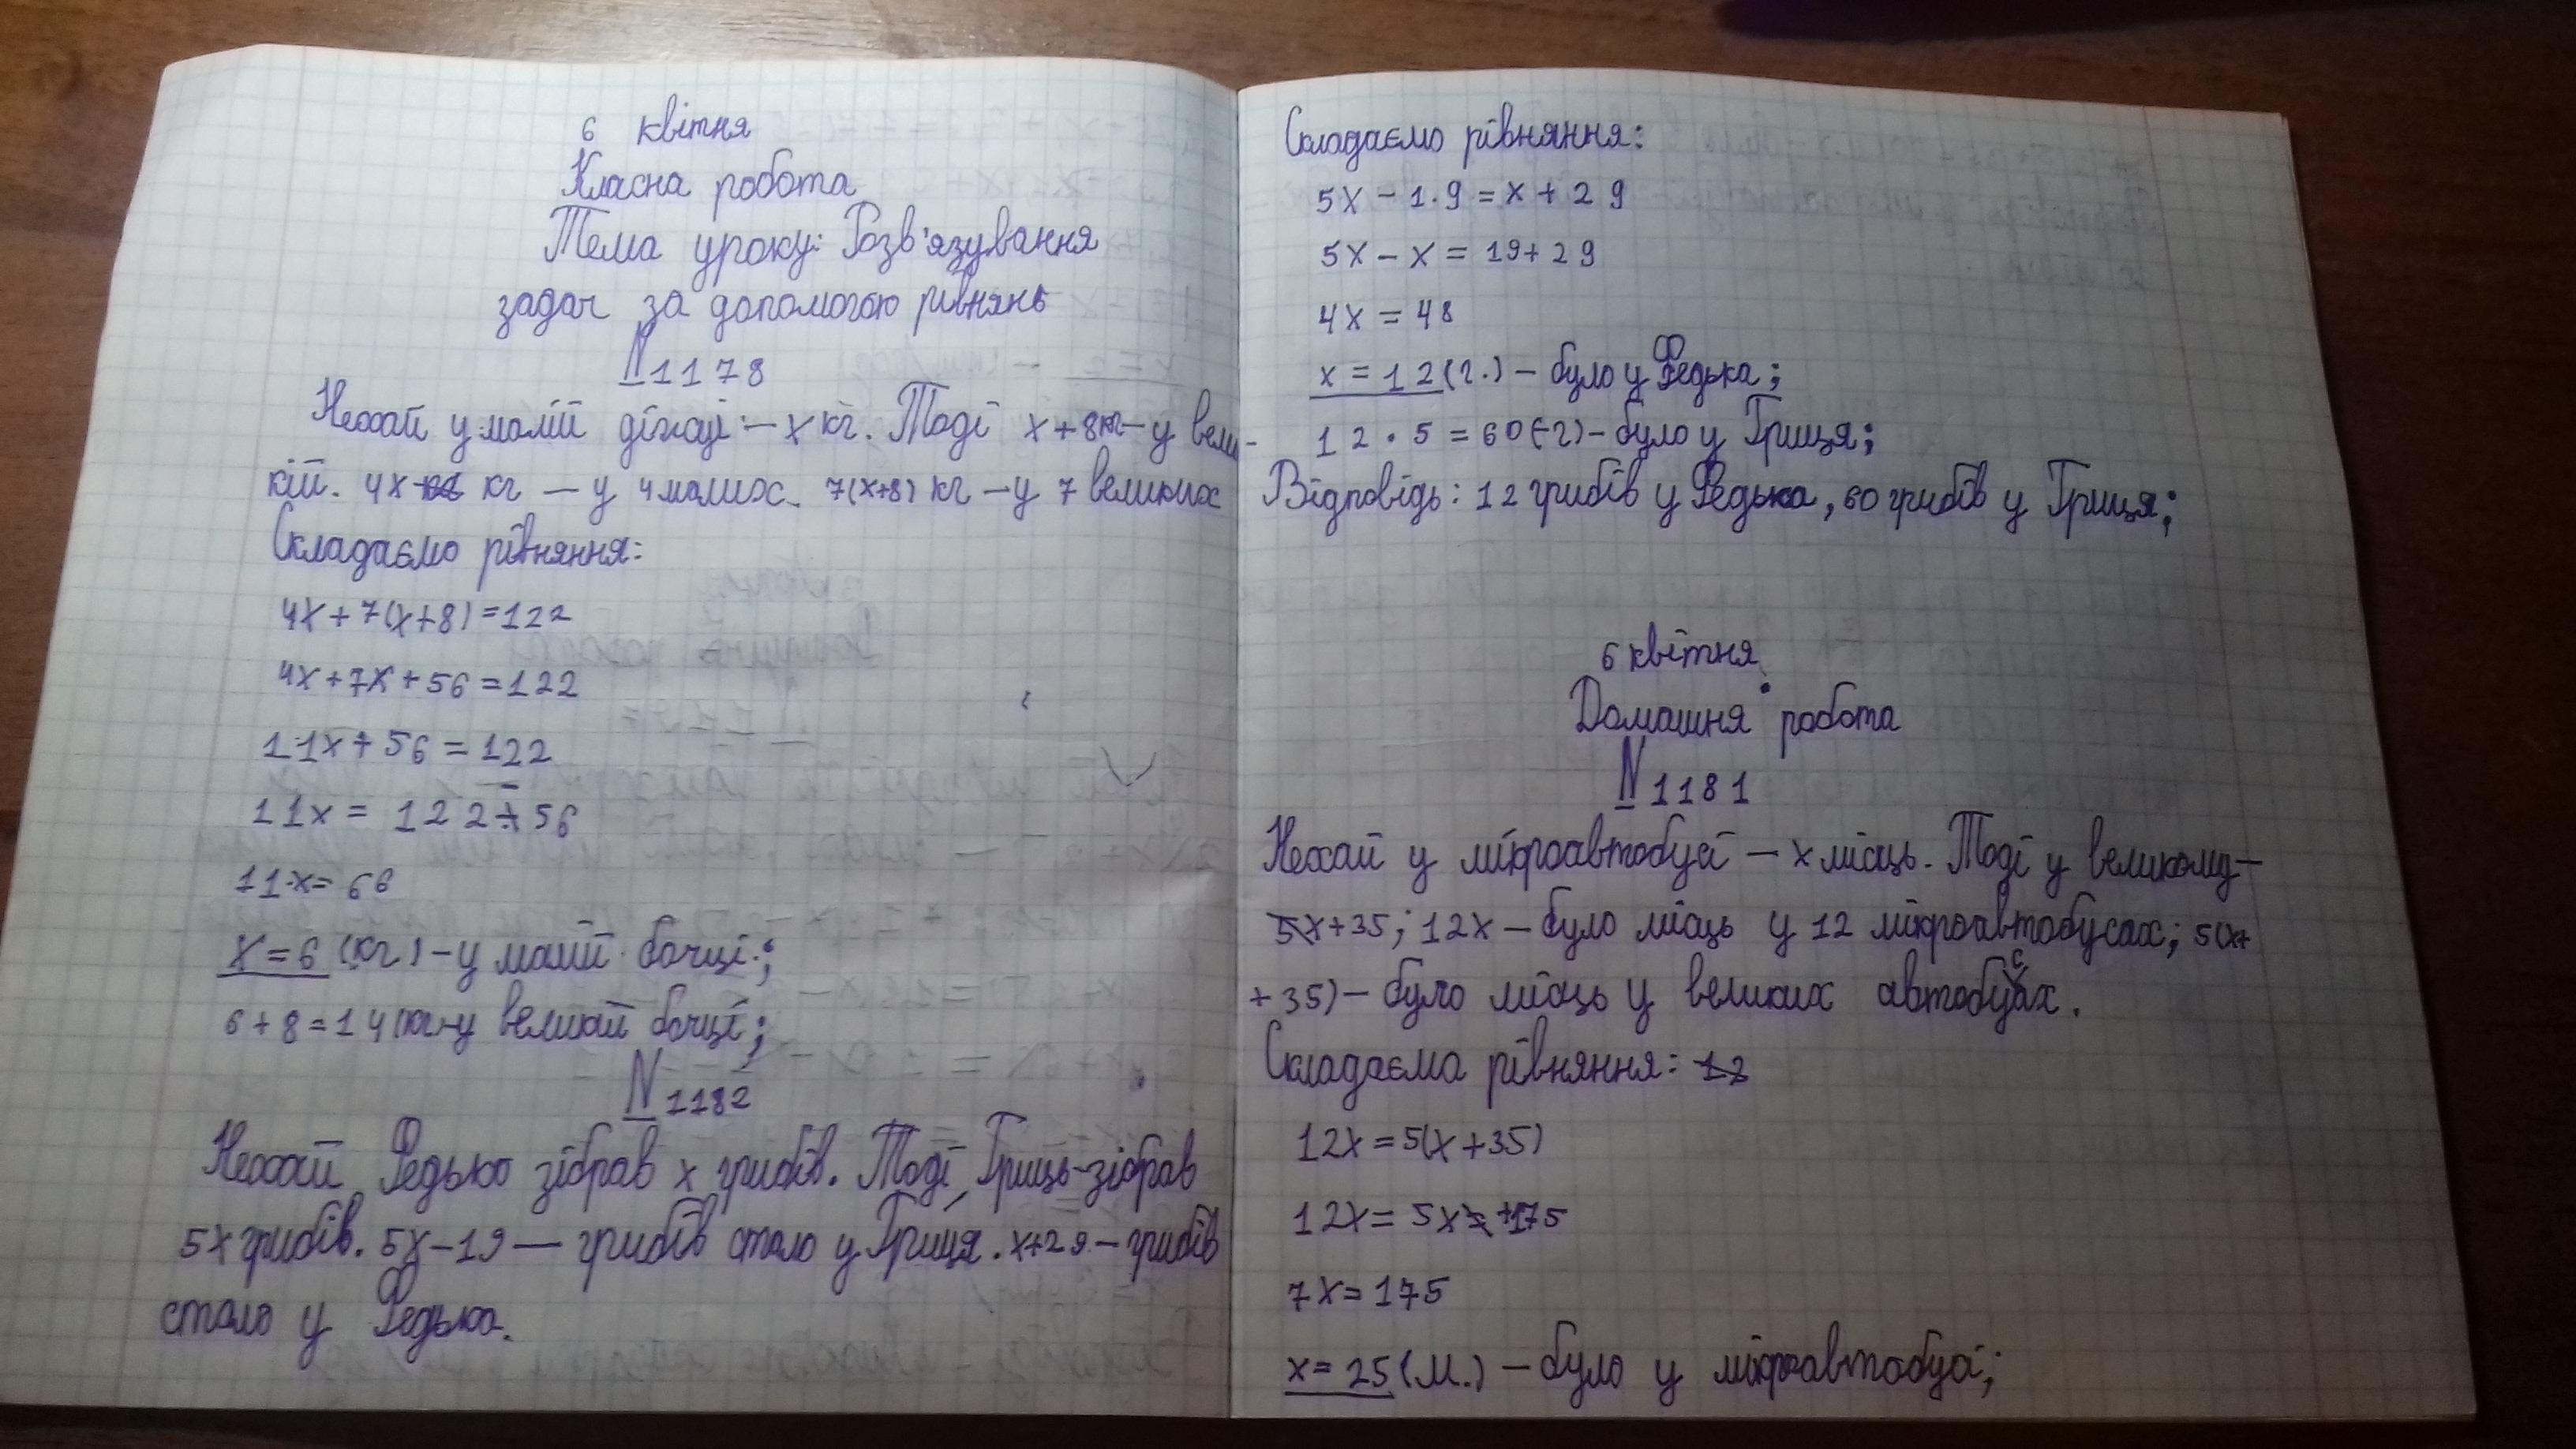 6 квітня
Класна робота
Тема уроку: Розв'язування
задач за допомогою рівнянь
№1178
Нехай у малій діжці - х кг. Тоді х+8кг - у вели-
кій. 4х кг - у 4 малих. 7(х+8) кг - у 7 великих
Складаємо рівняння:
4х+7(х+8)=122
4х+7х+56=122
11х+56=122
11х = 122-56
11х=66
х=6 (кг) - у малій бочці;
6+8=14(кг)-у великій бочці;
№1182
Нехай Федько зібрав х грибів. Тоді Гриць-зібрав
5х грибів. 5х-19 - грибів стало у Гриця. х+29 - грибів
стало у Федька.
Складаємо рівняння:
5х - 19 = х + 29
5х - х = 19+29
4х = 48
х = 12(г.) - було у Федька;
12 • 5 = 60(г) - було у Гриця;
Відповідь: 12 грибів у Федька, 60 грибів у Гриця;
6 квітня
Домашня робота
№1181
Нехай у мікроавтобусі - х місць. Тоді у великому-
х+35; 12х - було місць у 12 мікроавтобусах; 5(х+
+35) - було місць у великих автобусах.
Складаємо рівняння: 12
12х=5(х+35)
12х= 5х+175
7х=175
х= 25(м.) - було у мікроавтобусі;